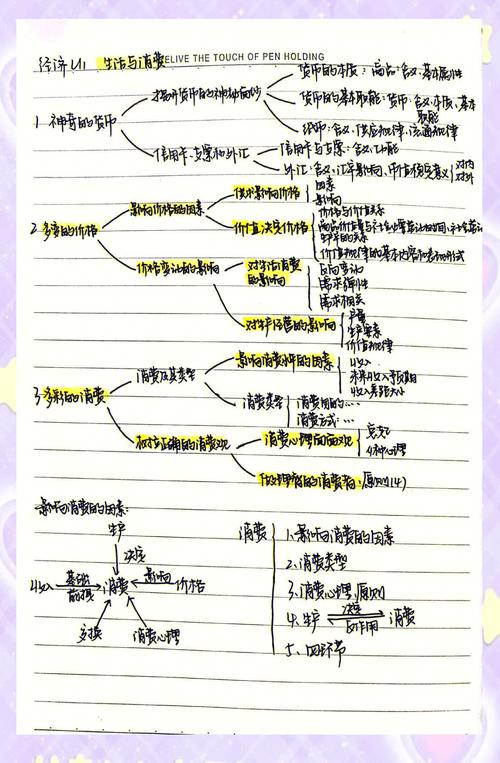 经济 U1 生活与消费
RELIVE THE TOUCH OF PEN HOLDING
1 神奇的货币
揭开货币的神秘面纱
货币的本质：商品：含义.基本属性
货币的基本职能：货币：含义.本质.基本职能
纸币：含义、供应规律、流通规律
信用卡、支票和外汇
信用卡与支票：含义.功能
外汇：含义、汇率影响、币值稳定意义
对内
对外
2 多变的价格
影响价格的因素
供求影响价格
因素
影响
价值决定价格
价格与价值关系
商品价值量与社会必要劳动时间、社会劳动生产率的关系
价值规律的基本内容和表现形式
价格变动的影响
对生活消费的影响
反向变动
需求弹性
需求相关
对生产经营的影响
产量
生产要素
价值规律
3 多彩的消费
消费及其类型
影响消费水平的因素
收入
未来收入预期
收入差距大小
消费类型
消费目的…
消费方式…
树立正确的消费观
消费心理面面观
含义
4种心理
做理智的消费者：原则(4)
影响消费的因素：
生产
决定
收入
基础
前提
消费
影响
价格
交换
消费心理
消费
1. 影响消费的因素
2. 消费类型
3. 消费心理、原则
4. 生产 决定 消费
反作用
5、四环节